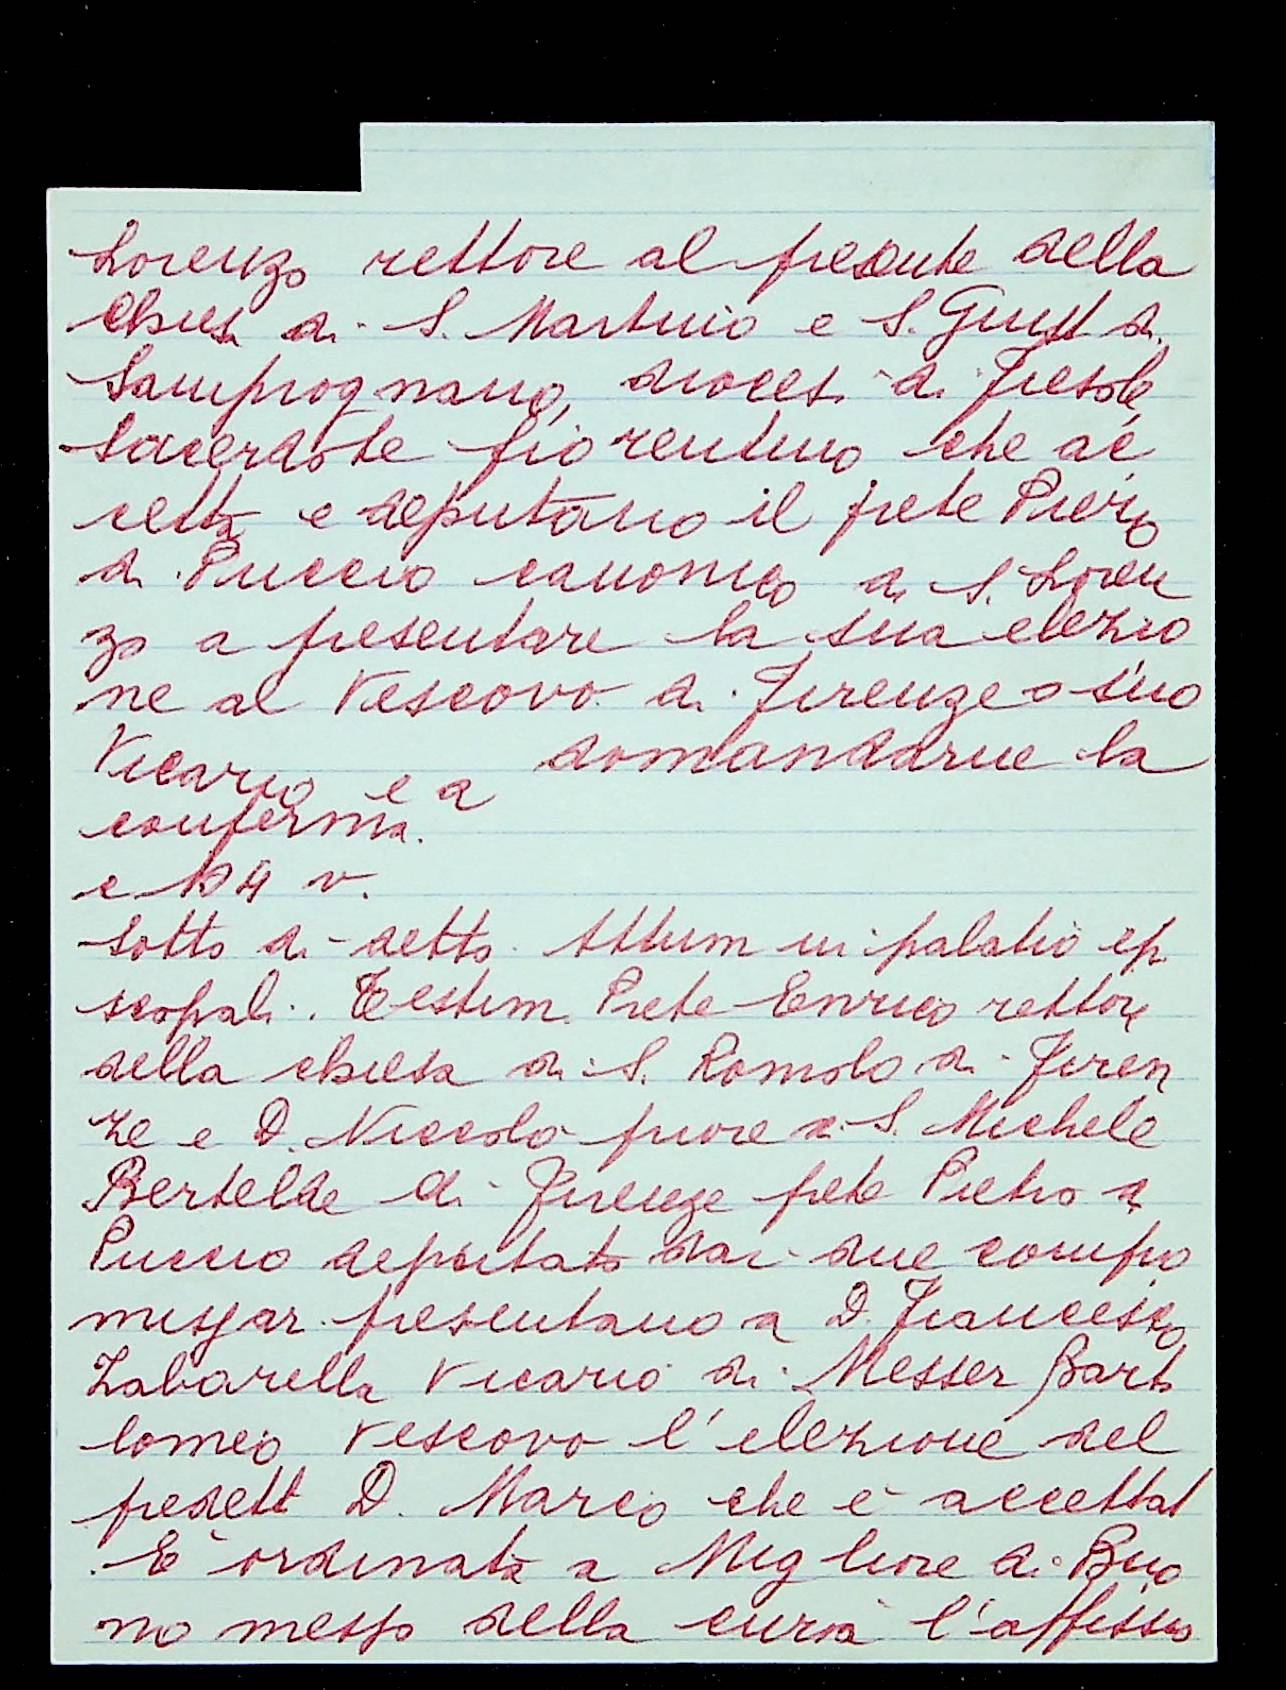 Lorenzo rettore al presente della
chiesa di S. Martino e S. Giusto di
Samprognano, diocesi di Fiesole,
sacerdote fiorentino che ac
cetta e deputano il prete Piero
di Puccio canonico di S. Loren
zo a presentare la sua elezio
ne al Vescovo di Firenze o suo
Vicario e a domandarne la
conferma.
c 104 v.
Sotto di detto. Attum in palatio epi
scopali. Testim. Prete Enrico rettore
della chiesa di S. Romolo di Firen
ze e D. Niccolò priore di S. Michele
Bertelde di Firenze prete Pietro di
Puccio deputato dai due compro
missari presentano a D. Francesco
Zabarella Vicario di Messer Barto
lomeo Vescovo l'elezione del
predetto D. Marco che è accettat
È ordinata a Migliore di Buo
no messo della curia l'affissio